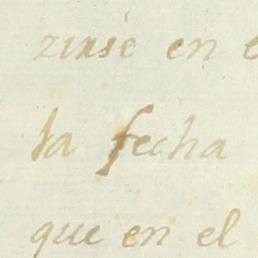 zirse en e
la fecha
que en el